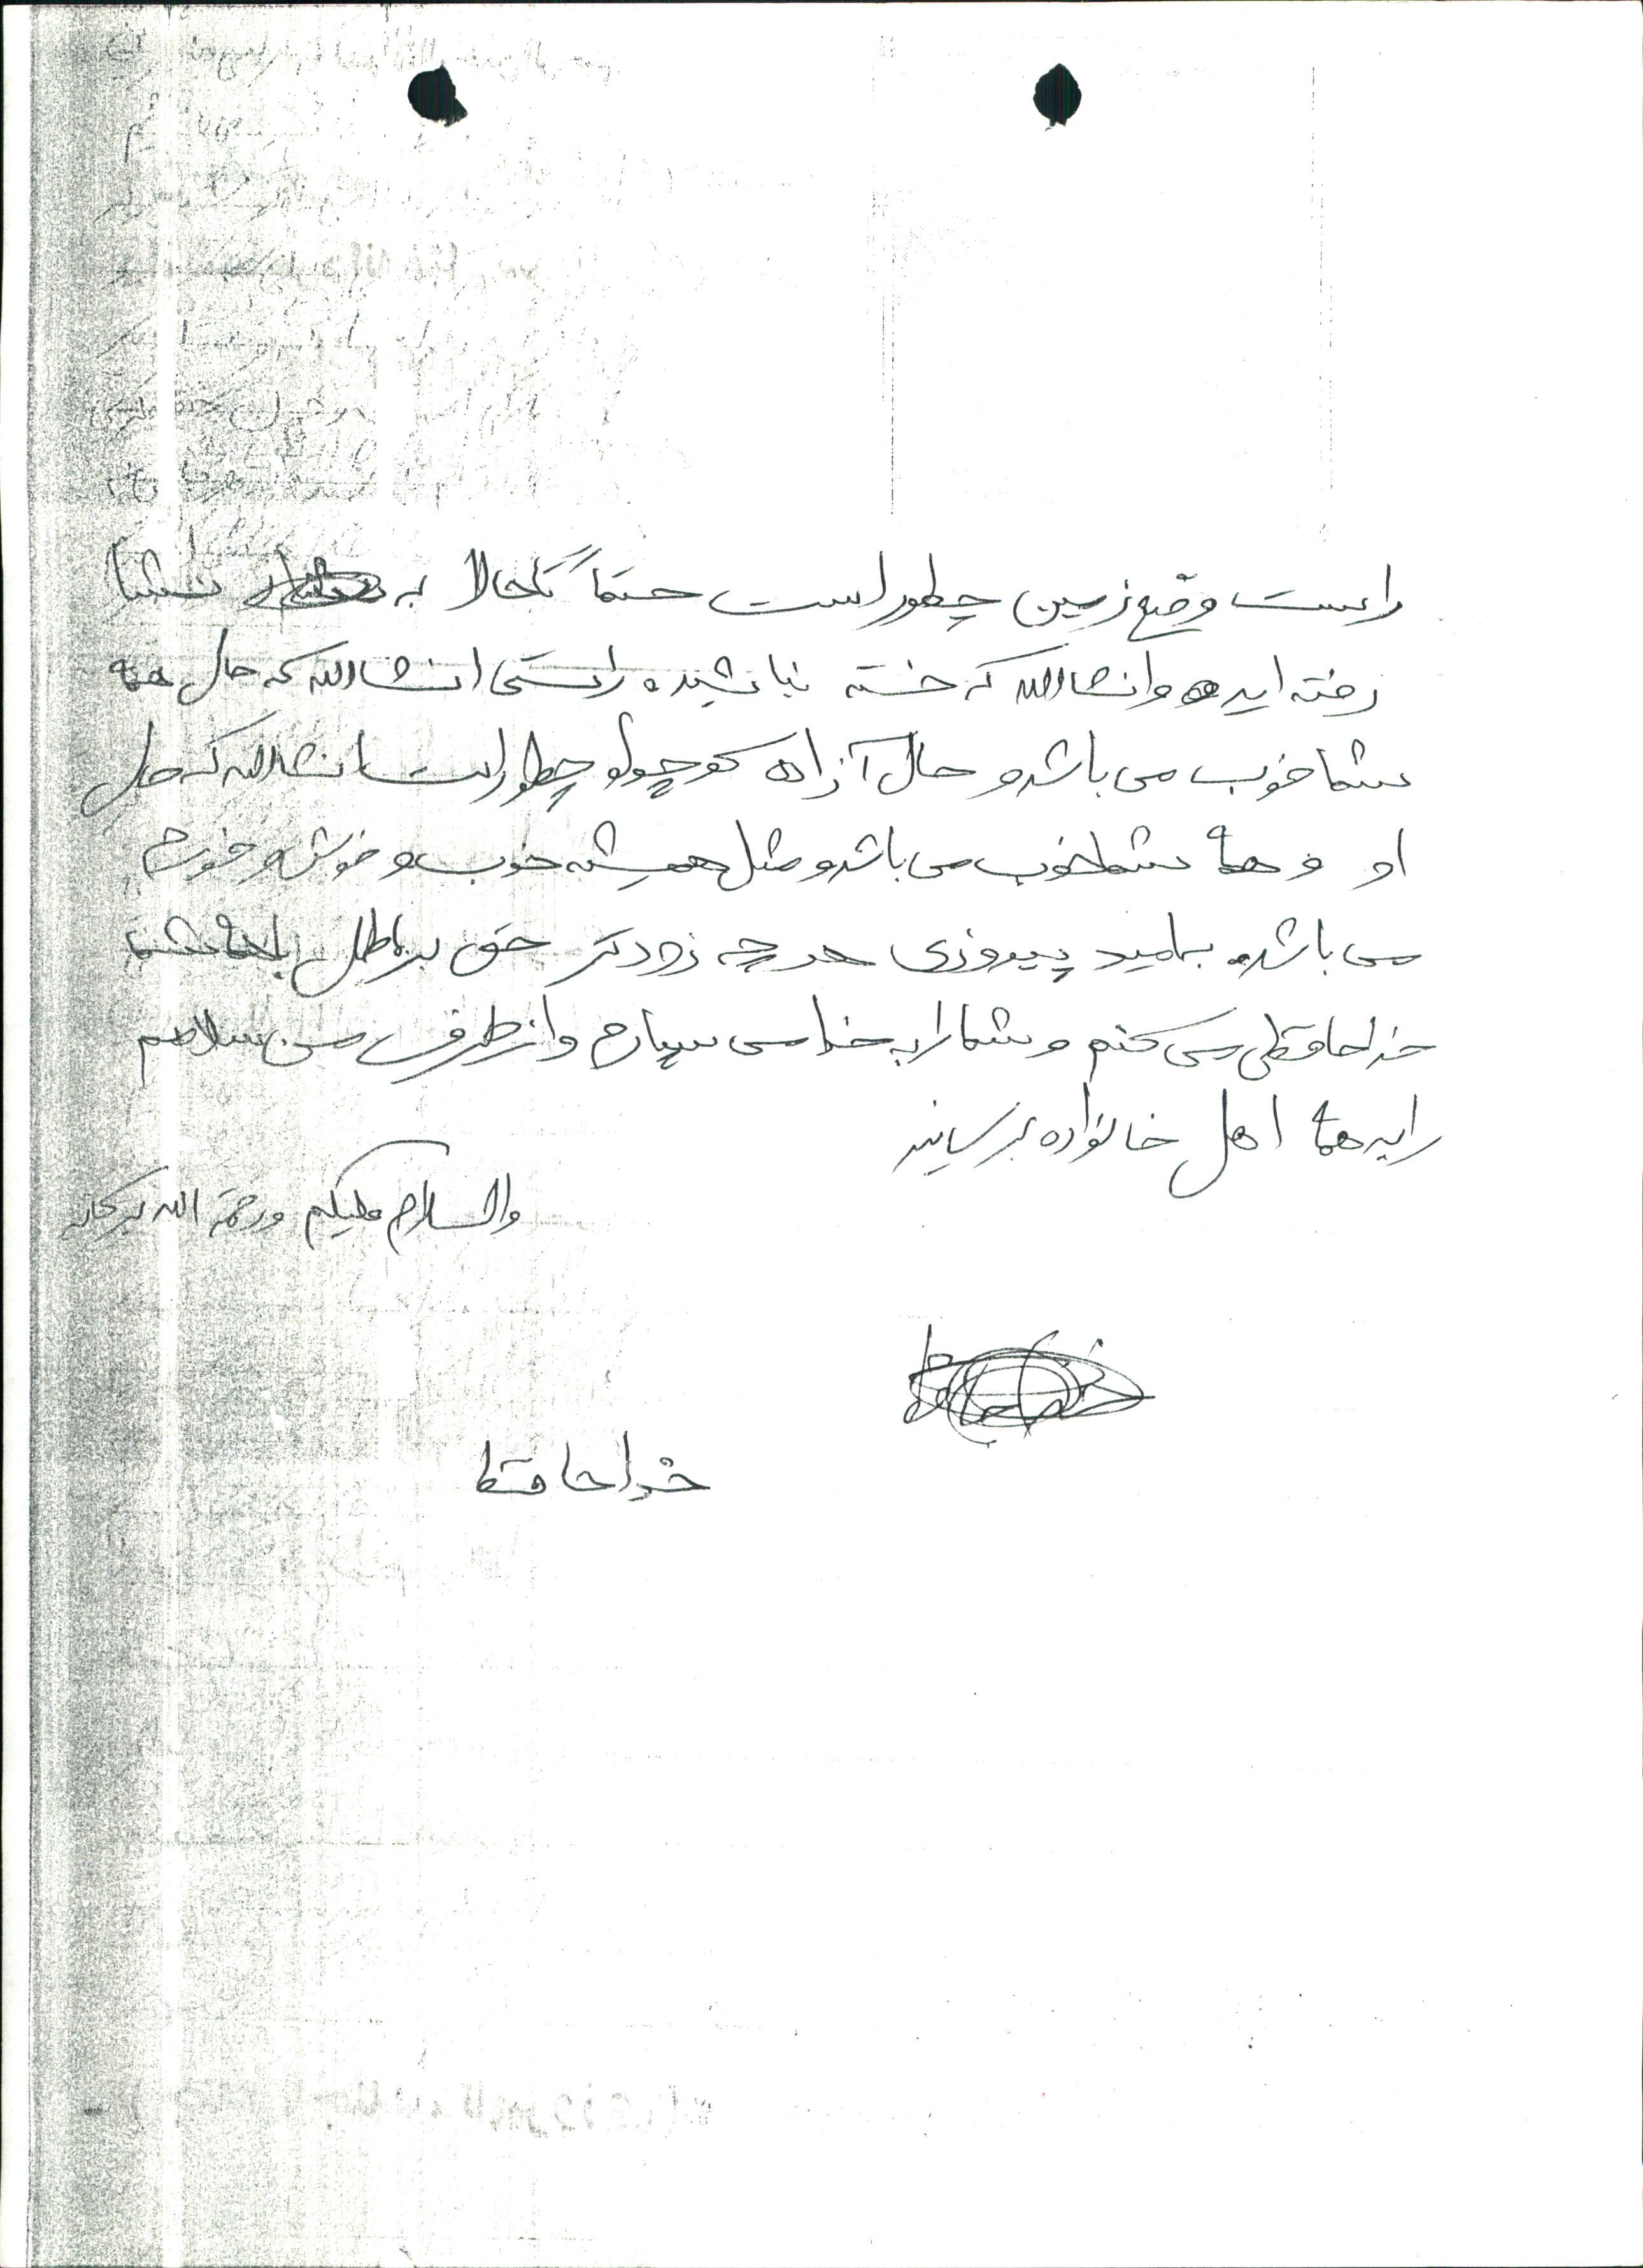 راست وضع زمین چطور است حتماً تا حالا به نشتا
رفته اید و انشاالله که خسته نباشید راستی انشاالله که حال همه
شما خوب می باشد و حال آزاده کوچولو چطور است انشاالله که حال
او و همۀ شما خوب می باشد و مثل همیشه خوب و خوش و خورم
می باشد. بامید پیروزی هر چه زودتر حق بر باطل با همۀ شما
خداحافظی می کنم و شما را به خدا می سپارم و از طرف من سلامم
را به همۀ اهل خانواده برسانید
والسلام علیکم ورحمة الله برکاته
خداحافظ